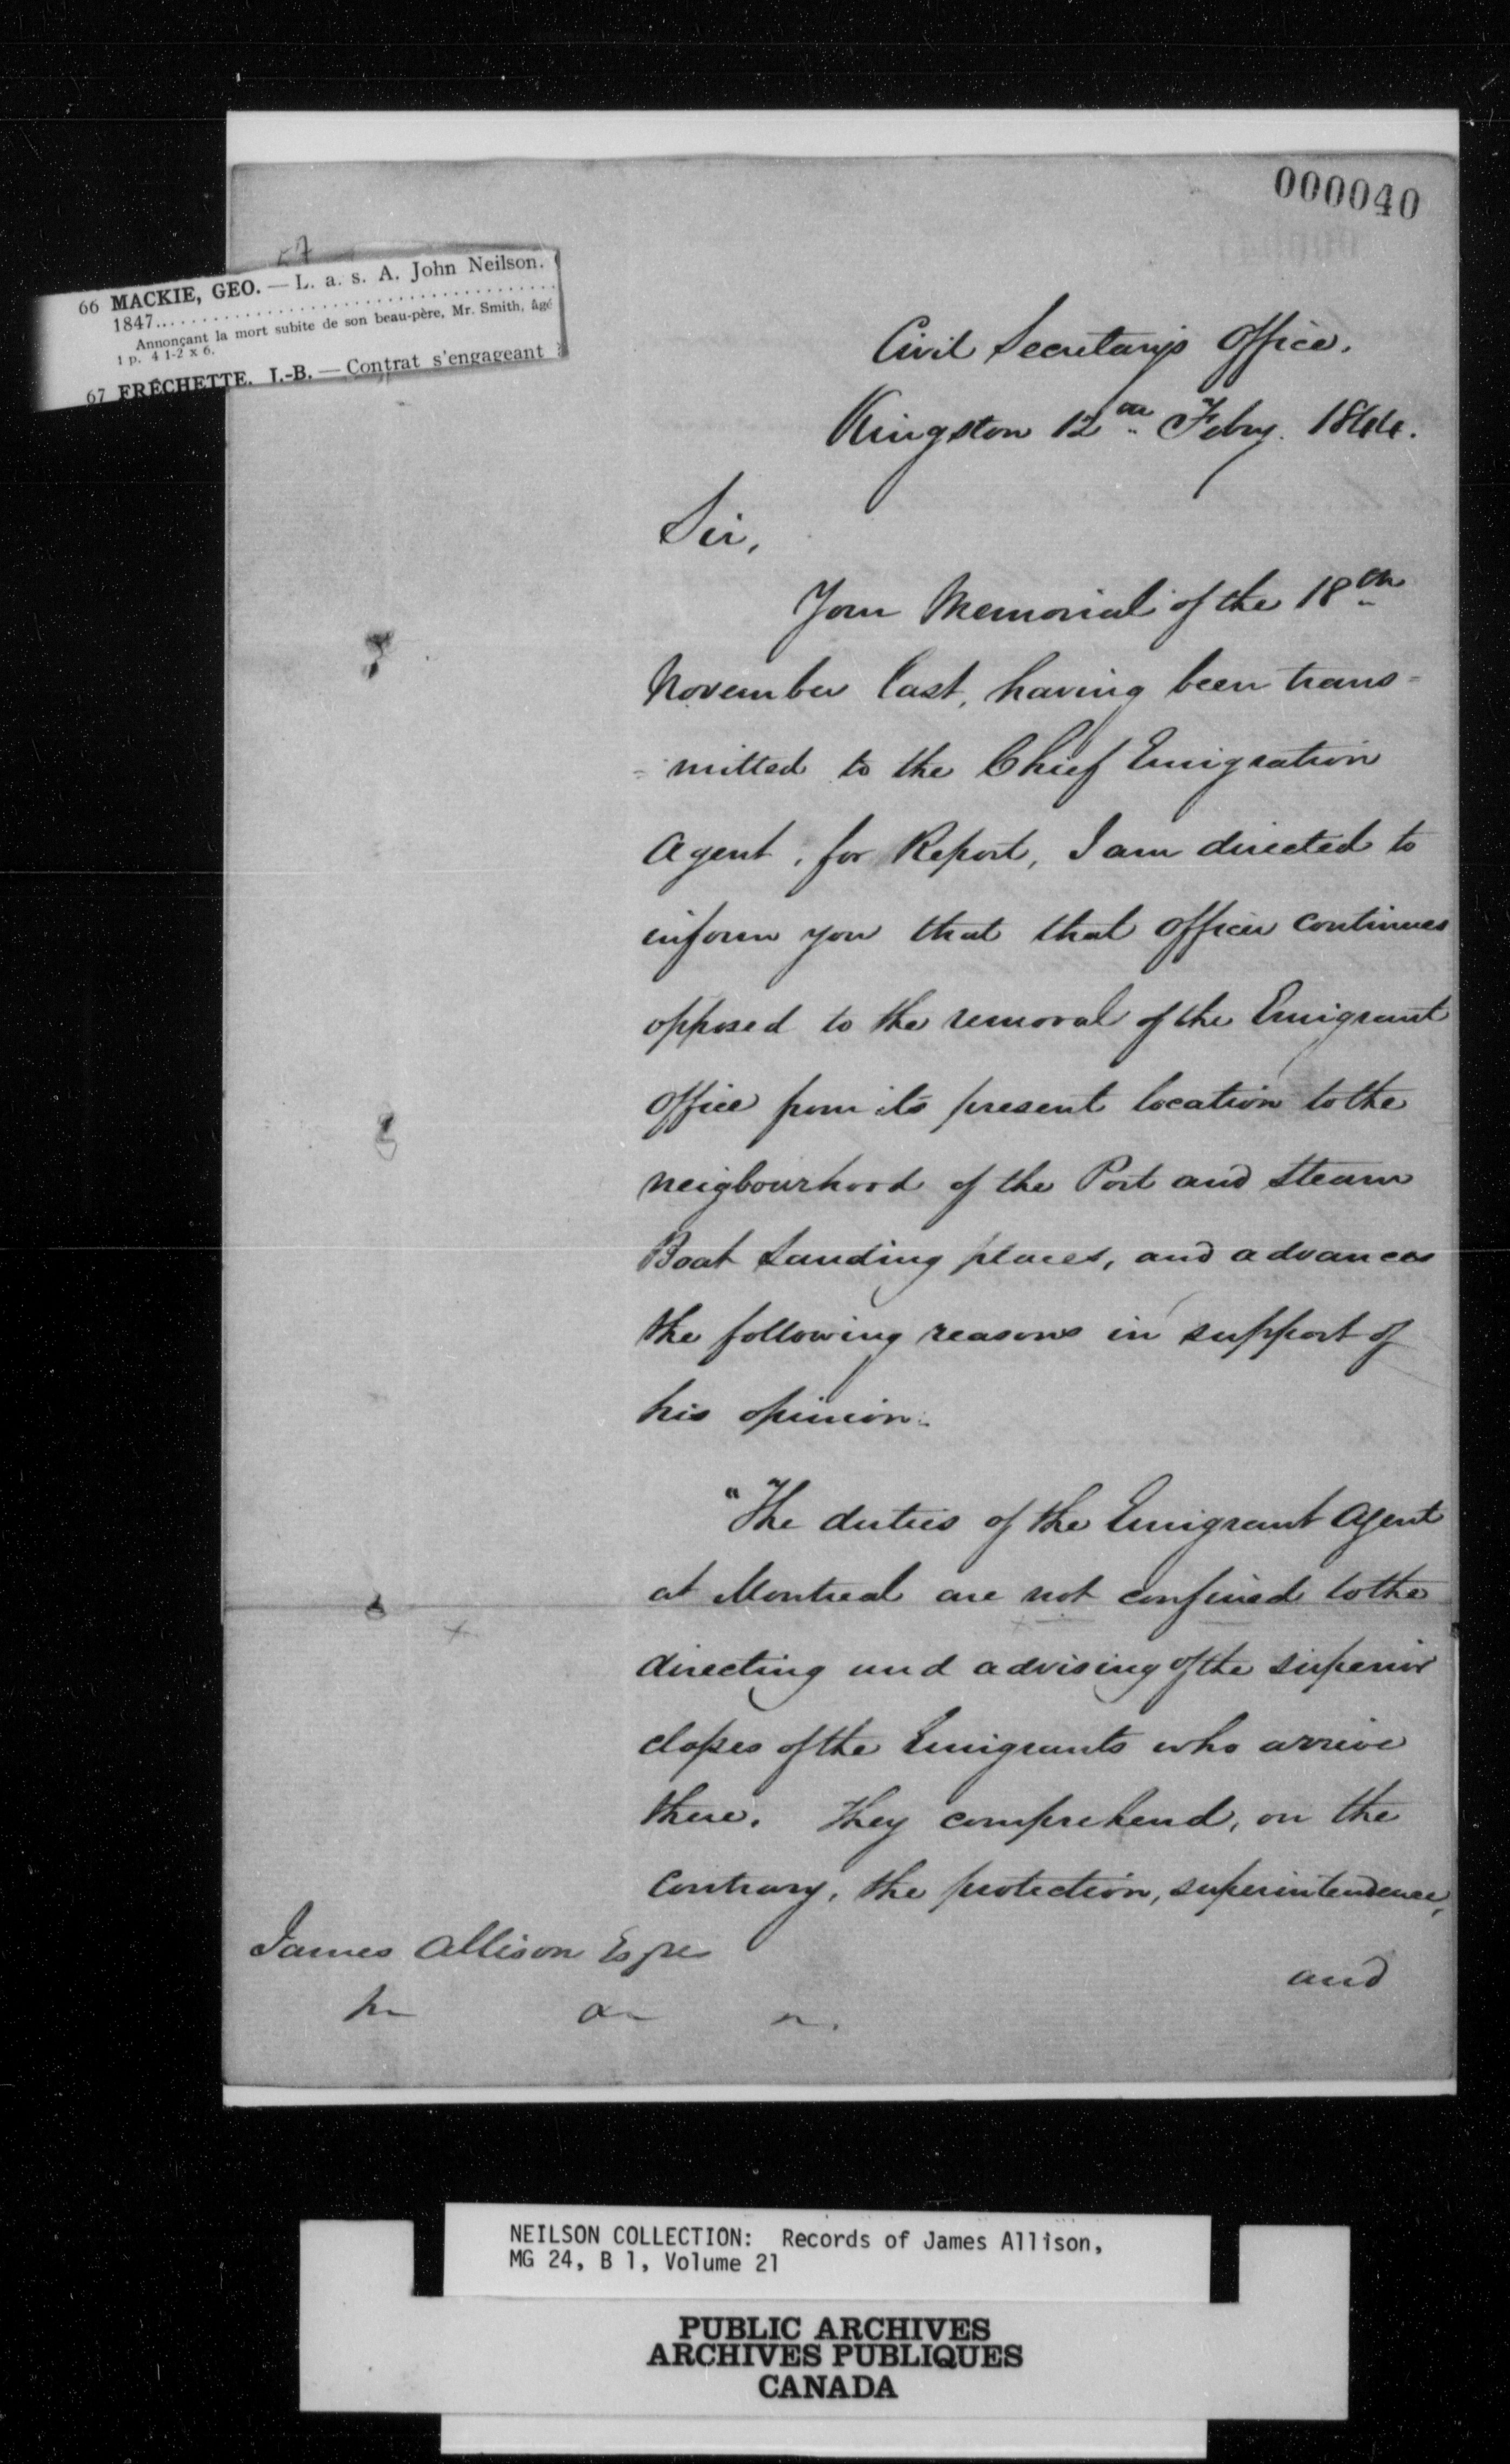 000040
57
66 MACKIE, GEO. — L. a. s. A. John Neilson.
1847....................................
Annonçant la mort subite de son beau-père, Mr. Smith, âgé
1 p. 4 1-2 x 6.
67 FRÉCHETTE. J.-B. — Contrat s'engageant à
Civil Secretary's Office.
Kingston 12th Febry. 1844.
Sir,
Your Memorial of the 18th
November last, having been trans=
=mitted to the Chief Emigration
Agent, for Report, I am directed to
inform you that that officer continues
opposed to the removal of the Emigrant
Office from its present location to the
neigbourhood of the Port and Steam
Boat Landing places, and advances
the following reasons in support of
his opinion.
"The duties of the Emigrant Agent
at Montreal are not confined to the
directing and advising of the superior
classes of the Emigrants who arrive
there. They comprehend, on the
contrary, the protection, superintendence,
and
James Allison Esqre
NEILSON COLLECTION: Records of James Allison,
MG 24, B 1, Volume 21
PUBLIC ARCHIVES
ARCHIVES PUBLIQUES
CANADA